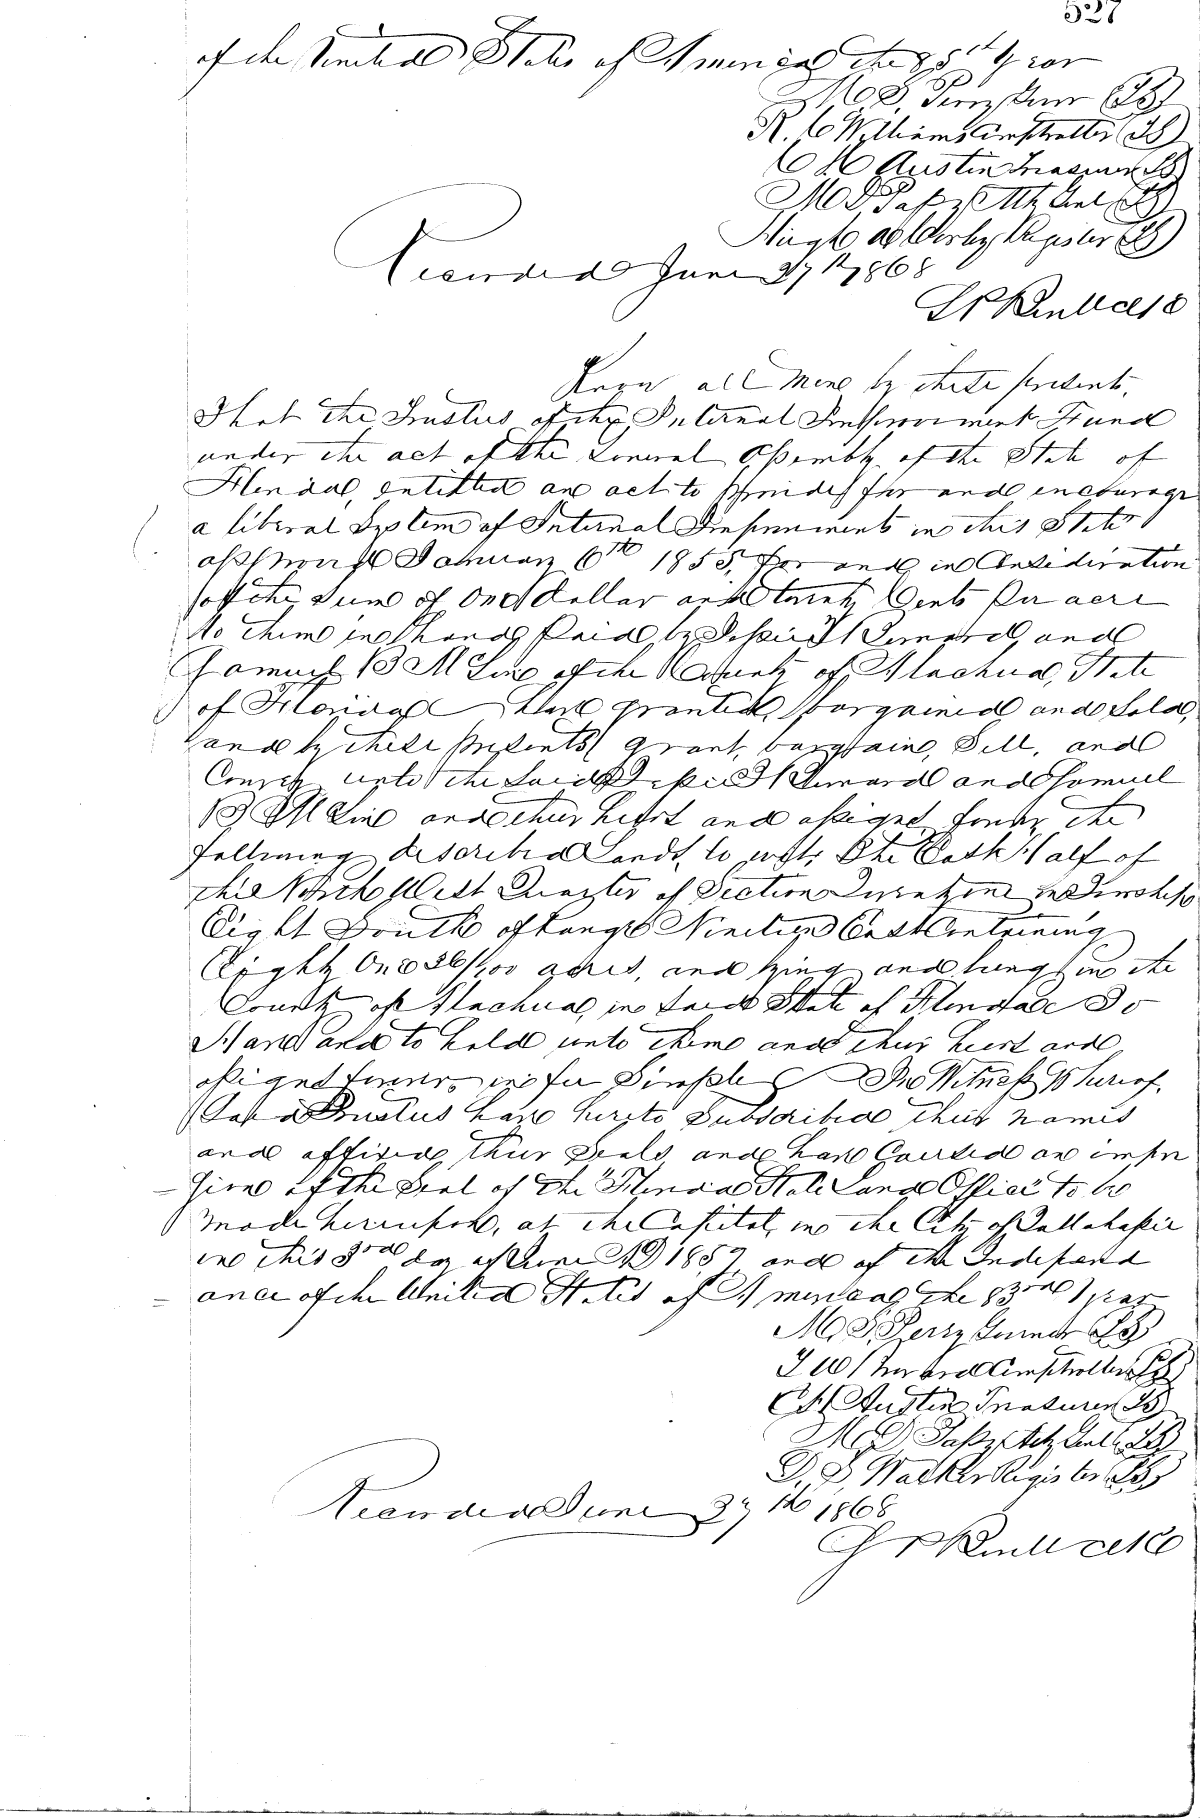 527
of the United States of America the 85th Year
M. S. Perry Govr (LS)
R. C Williams Comptroller (LS)
C H Austin Treasurer (LS)
M D Papy Atty Genl (LS)
Hugh A Corley Register (LS)
Recorded June 27th 1868
Know all Men by these presents,
That the Trustees of the Internal Improvement Fund
under the act of the General Assembly of the State of
Florida, entitled an act to provide for and encourage
a liberal System of Internal Improvements in this State
approved January 6th 1855, for and in Consideration
of the Sum of One Dollar and twenty Cents Per acre
to them in hand Paid, by and
Samuel B M Lin of the County of Alachua, State
of Florida have granted, bargained and Sold,
and by these presents grant, bargain, Sell, and
Convey unto the Said and Samuel
B M Lin and their heirs and assigns forever the
following described Lands, to wit: The East Half of
the North West Quarter of Section Twenty one in Township
Eight South of Range Nineteen East Containing
Eighty One 26/100 acres, and lying and being in the
County of Alachua, in Said State of Florida To
Have and to hold unto them and their heirs and
assigns forever, in fee Simple In Witness Whereof,
Said Trustees have hereto Subscribed their names
and affixed their Seals and have Caused an impre
=sion of the Seal of The Florida State Land Office to be
made hereupon, at the Capitol, in the City of Tallahassee
in this 3rd day of June AD 1859 and of the Independ
=ance of the United States of America the 83rd year
M. S. Perry Governor (LS)
T W Comptroller (LS)
C H Austin Treasurer (LS)
M D Papy Atty Genl (LS)
D. S. Walker Register (LS)
Recorded June 27th 1868